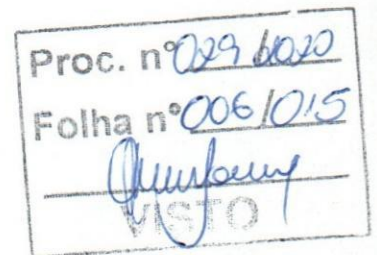 Proc. nº 029/2020
Folha nº 006/015
VISTO